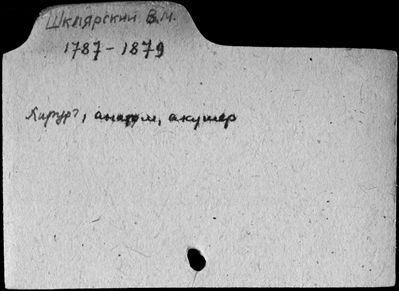 Шклярский В.М.
1787-1879
Хирург, анатом, акушер